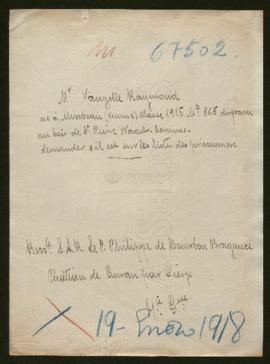 67502.
Mr Vauzelle Raymond
né à Mirebeau (Vienne) classe 1915 Mle 865 disparu
au bois de St Pierre Waast. Somme.
demander s'il est sur les listes des prisonniers
S.A.R. Le P. Philippe de Bourbon Bragance
Château de
19 - Enero 1918